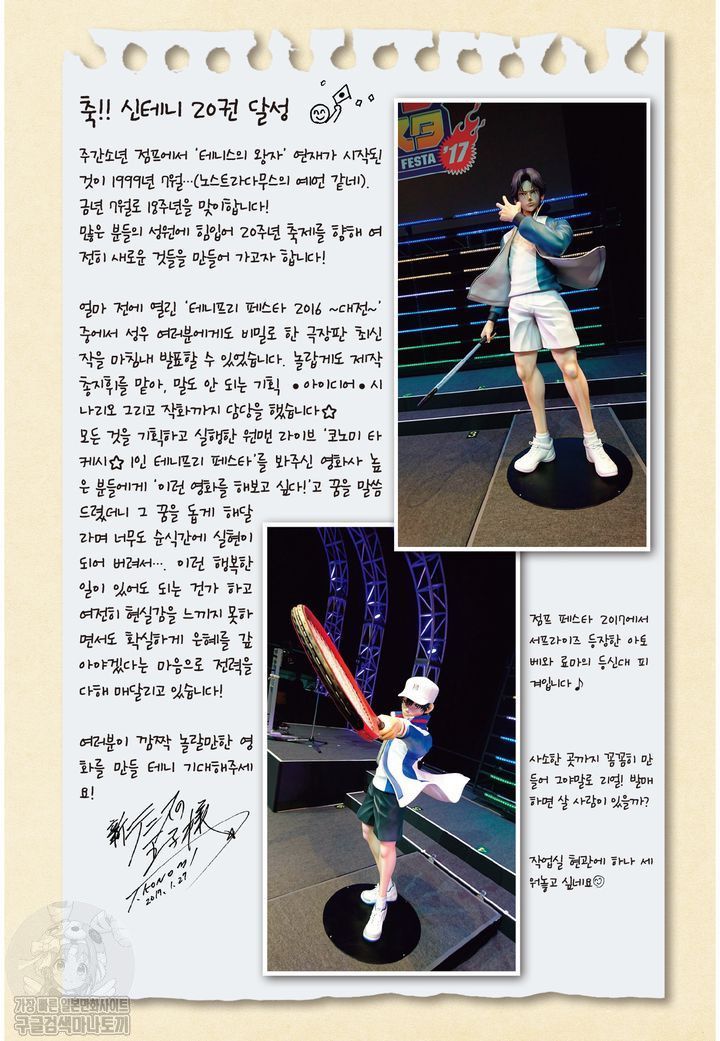 축!! 신테니 20권 달성
주간소년 점프에서 '테니스의 왕자' 연재가 시작된
것이 1999년 7월…(노스트라다무스의 예언 같네).
금년 7월로 18주년을 맞이합니다!
많은 분들의 성원에 힘입어 20주년 축제를 향해 여
전히 새로운 것들을 만들어 가고자 합니다!
얼마 전에 열린 '테니프리 페스타 2016 ~대전~'
중에서 성우 여러분에게도 비밀로 한 극장판 최신
작을 마침내 발표할 수 있었습니다. 놀랍게도 제작
총지휘를 맡아, 말도 안 되는 기획 •아이디어•시
나리오 그리고 작화까지 담당을 했습니다☆
모든 것을 기획하고 실행한 원맨 라이브 '코노미 타
케시☆1인 테니프리 페스타'를 봐주신 영화사 높
은 분들에게 '이런 영화를 해보고 싶다!'고 꿈을 말씀
드렸더니 그 꿈을 돕게 해달
라며 너무도 순식간에 실현이
되어 버려서…. 이런 행복한
일이 있어도 되는 건가 하고
여전히 현실감을 느끼지 못하
면서도 확실하게 은혜를 갚
아야겠다는 마음으로 전력을
다해 매달리고 있습니다!
여러분이 깜짝 놀랄만한 영
화를 만들 테니 기대해주세
요!
新テニスの
王子様
T.KONOMI
2017.1.27
FESTA '17
점프 페스타 2017에서
서프라이즈 등장한 아토
베와 료마의 등신대 피
겨입니다♪
사소한 곳까지 꼼꼼히 만
들어 그야말로 리얼! 발매
하면 살 사람이 있을까?
작업실 현관에 하나 세
워놓고 싶네요
가장 빠른 일본만화사이트
구글검색마나토끼